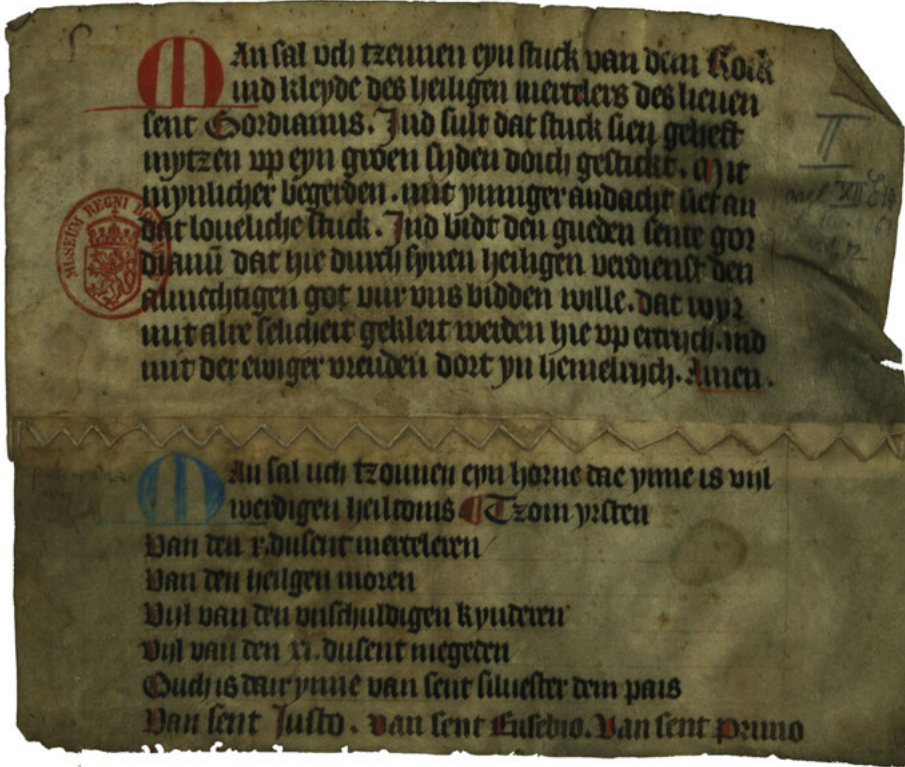 MAn sal vch tzeunen eyn stuck van dem Rock
ind kleyde des heiligen mertelers des lieuen
sent Gordianus. Jnd sult dat stuck sien geheft
mytzen vp eyn groen syden doich gestickt. Mit
mynlicher begerden. mit ynniger andacht siet an
dat loueliche stuck. Jnd bidt den gueden sente gor
dianū dat hie durch synen heiligen verdienst den
almechtigen got vur vns bidden wille. dat wyr
mit alre selicheit gekleit werden hie vp ertrych. ind
mit der ewiger vreuden dort yn hemelrych. Amen.
II
XII
MUSEUM REGNI
MAn sal uch tzounen eyn horne dae ynne is vijl
werdigen heiltoms Tzom yrsten
Van den x. dusent merteleren
Van den heilgen moren
Vijl van den vnschuldigen kynderen
vijl van den xi. dusent megeden
Ouch is dair ynne van sent siluester dem pais
Van sent Justo. van sent Eusebio. Van sent primo